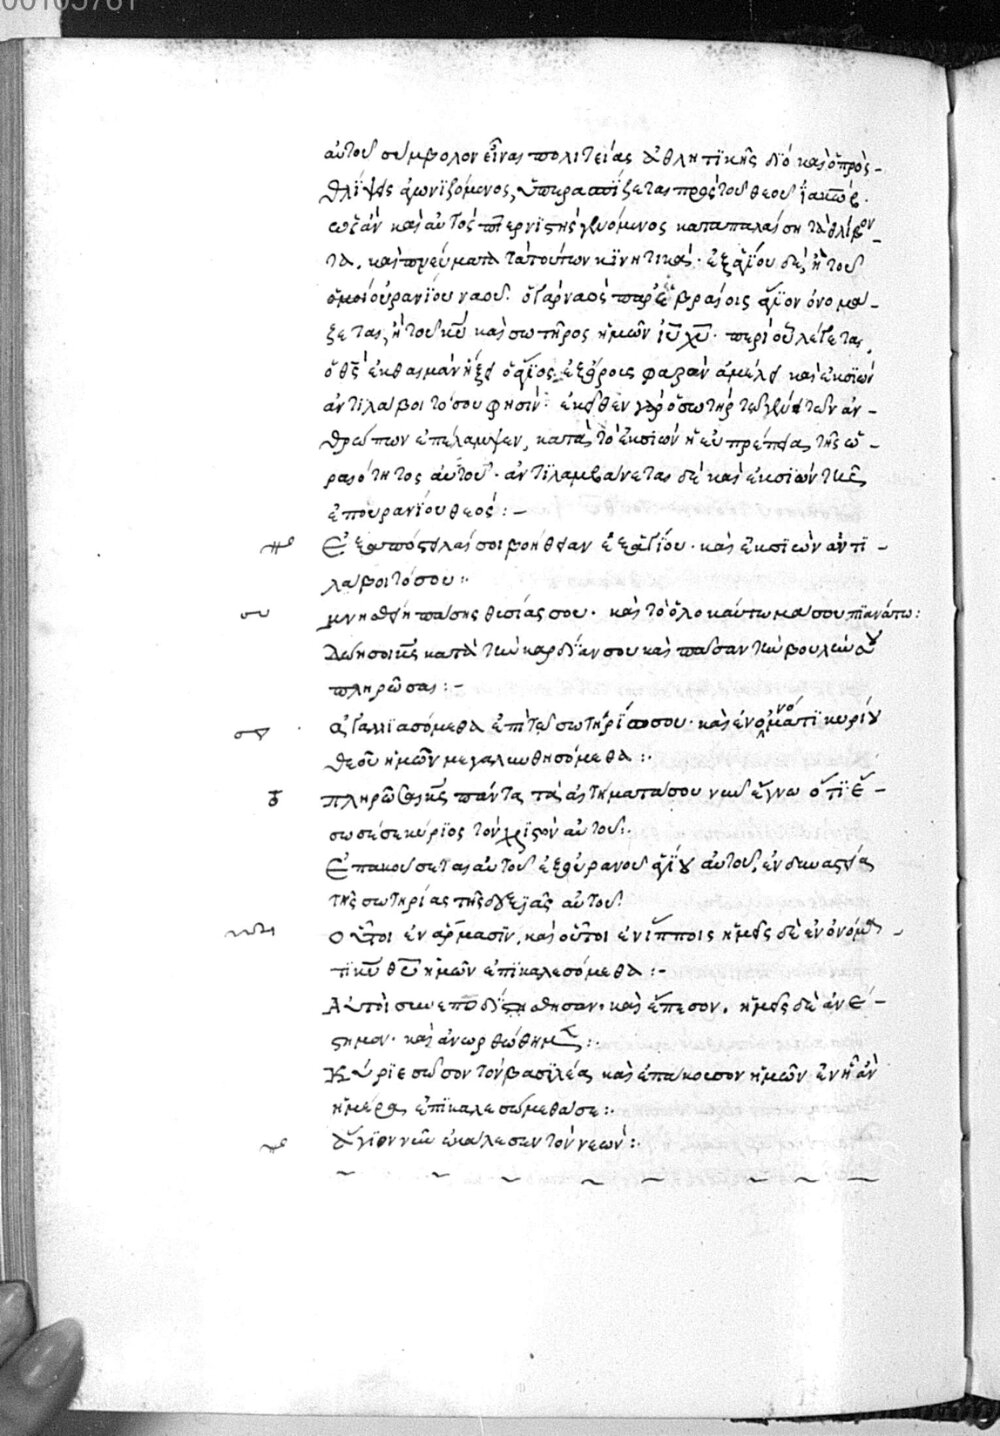 αὐτοῦ σύμβολον εἶναι πολιτείας ἀθλητικῆς διό καὶ ὁ πρὸς
θλίψεις ἀγωνιζόμενος, ὑπερασπίζεται πρὸς τοῦ θεοῦ ἰακώβ.
ὡς ἂν καὶ αὐτὸς πτερνιστὴς γενόμενος καταπαλαίση τὰ θλίβον-
τα, καὶ πνεύματα τὰ τούτων κινητικά. ἐξ ἁγίου δὲ, ἢ τοῦ
ὁμοιουρανίου ναοῦ. ὁ γὰρ ναὸς παρ' ἑβραίοις ἅγιον ὀνομά-
ζεται, ἢ τοῦ κυ καὶ σωτῆρος ἡμῶν ιυ χυ. περὶ οὗ λέγεται,
ὁ θς ἐκ θαιμὰν ἥξει ὁ ἅγιος ἐξ ὄρους φαρὰν καὶ ἐκ σιὼν
ἀντιλάβοιτό σου φησίν. ἐκεῖθεν γὰρ ὁ σωτὴρ τῶ γένει τῶν ἀν-
θρώπων ἐπέλαμψεν, κατὰ τὸ ἐκ σιὼν ἡ εὐπρέπεια τῆς ὡ-
ραιότητος αὐτοῦ. ἀντιλαμβάνεται δὲ καὶ ἐκ σιὼν τῆς
ἐπουρανίου θεός:-
Ἐξαποστείλαι σοι βοήθειαν ἐξ ἁγίου. καὶ ἐκ σιὼν ἀντι-
λάβοιτό σου:
μνησθείη πάσης θυσίας σου. καὶ τὸ ὁλοκαύτωμά σου πιανάτω:
Δώη σοι κς κατὰ τὴν καρδίαν σου καὶ πᾶσαν τὴν βουλήν σου
πληρῶσαι:-
Ἀγαλλιασόμεθα ἐπὶ τῶ σωτηρίω σου. καὶ ἐν ὀνόματι κυρίου
θεοῦ ἡμῶν μεγαλυνθησόμεθα:.
πληρῶσαι κς πάντα τὰ αἰτήματά σου νῦν ἔγνω ὅτι ἔ-
σωσε κύριος τὸν χριστὸν αὐτοῦ:.
Ἐπακούσεται αὐτοῦ ἐξ οὐρανοῦ ἁγίου αὐτοῦ, ἐν δυναστεία
τῆς σωτηρίας τῆς δεξιᾶς αὐτοῦ
Οὗτοι ἐν ἅρμασιν, καὶ οὗτοι ἐν ἵπποις ἡμεῖς δὲ ἐν ὀνόμα-
τι κυ θυ ἡμῶν ἐπικαλεσόμεθα:-
Αὐτοὶ συνεποδίσθησαν. καὶ ἔπεσον. ἡμεῖς δὲ ἀνέ-
στημεν. καὶ ἀνωρθώθημεν:.
Κύριε σῶσον τὸν βασιλέα καὶ ἐπάκουσον ἡμῶν ἐν ἧ ἂν
ἡμέρα ἐπικαλεσώμεθά σε:.
ἅγιον ἐκάλεσεν τὸν νεών:.